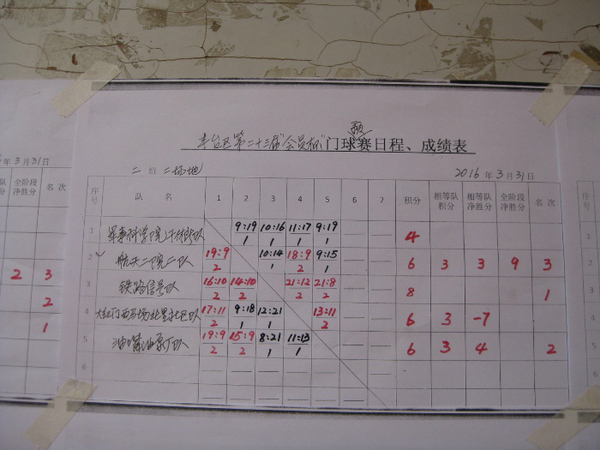 年 3月31日
全阶段净胜分 名次
2 3
2
1
丰台区第二十三届"会员杯"门球赛日程、成绩表
二 组 二场地 2016 年 3月31日
序号 队 名 1 2 3 4 5 6 7 积分 相等队积分 相等队净胜分 全阶段净胜分 名次
1 军事科学院 队 9:19 1 10:16 1 11:17 1 9:19 1 4
2 航天二院二队 19:9 2 10:14 1 18:9 2 9:15 1 6 3 3 9 3
3 铁路信号队 16:10 2 14:10 2 21:12 2 21:8 2 8 1
4 大红门西 队 17:11 2 9:18 1 12:21 1 13:11 2 6 3 -7
5 油 厂队 19:9 2 15:9 2 8:21 1 11:13 1 6 3 4 2
6